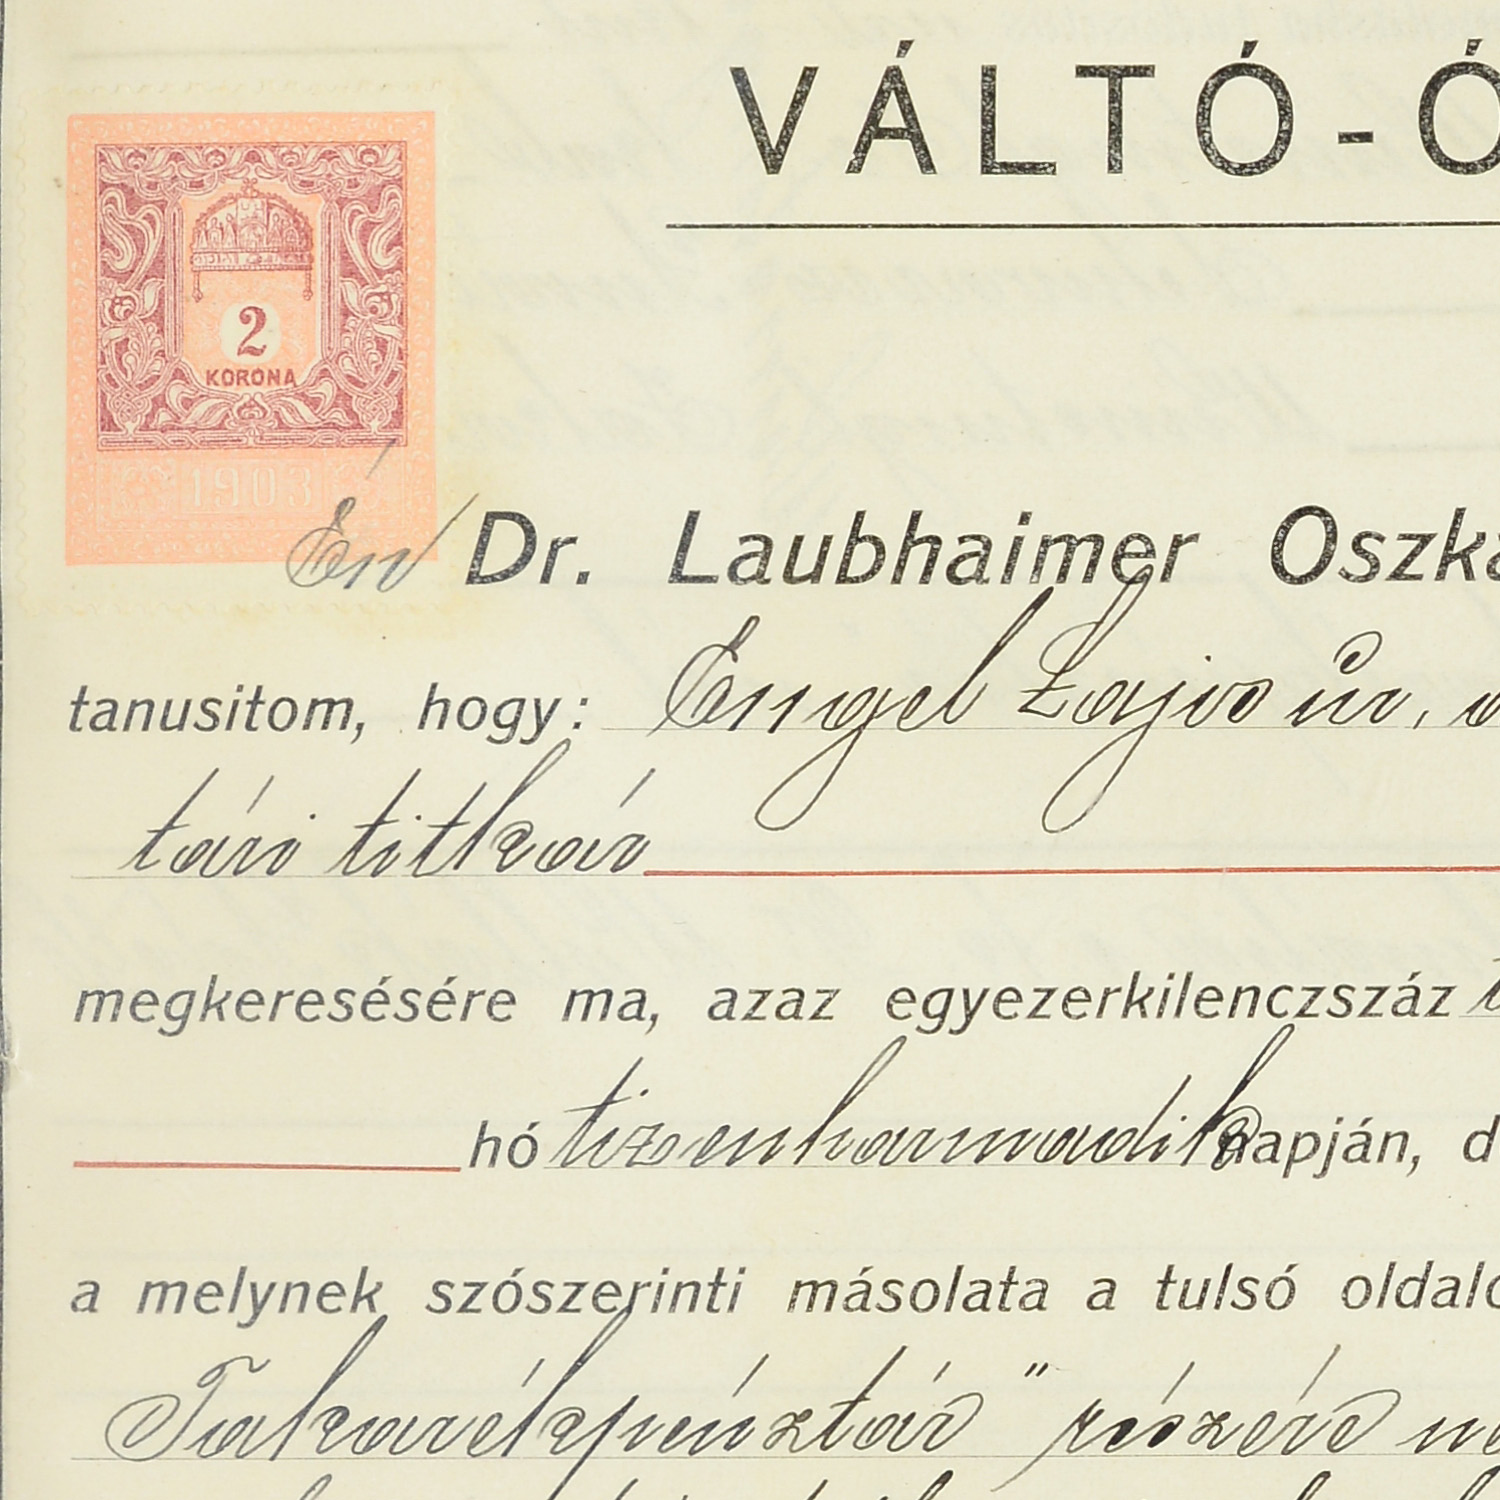 VÁLTÓ-Ó
2
KORONA
1903
Én Dr. Laubhaimer Oszká
tanusitom, hogy: Engel Lajos úr,
tári titkár
megkeresésére ma, azaz egyezerkilenczszáz
hó tizenharmadik napján, d
a melynek szószerinti másolata a tulsó oldalo
Takarékpénztár" részére